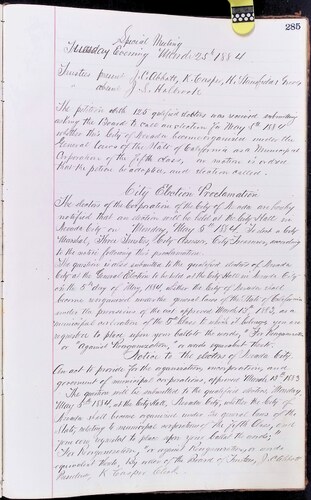 285
Special Meeting
Tuesday Evening March 25th 1884
Trustees present J. C. Abbott, K. Casper,
absent J. S. Holbrook
The petition of the 125 qualified electors was received submitting
asking the Board to call an election for May 5th 1884
whether this City of Nevada become reorganized under the
General Laws of the State of California as a Municipal
Corporation of the fifth class, on motion is ordered
that the petition be accepted, and election called.
City Election Proclamation
The electors of the Corporation of the City of Nevada are hereby
notified that an election will be held at the City Hall in
Nevada City on Monday, May 5th 1884, To elect a City
Marshal, Three Trustees, City Assessor, City Treasurer, according
to the notice following this proclamation.
The question is also submitted to the qualified electors of Nevada
City at the General Election to be held at the City Hall in Nevada City
on the 5th day of May, 1884, whether the City of Nevada shall
become reorganized under the general laws of the State of California
under the provisions of the act approved March 13th 1883, as a
municipal corporation of the 5th class to which it belongs you are
requested to place upon your ballots the words, "For Reorganization"
or "Against Reorganization," or words equivalent thereto.
Notice to the electors of Nevada City
An act to provide for the organization, incorporation, and
government of municipal corporations, approved March 13th 1883
The question will be submitted to the qualified electors Monday
May 5th 1884, at the City Hall, Nevada City, whether the City of
Nevada shall become organized under the general laws of the
State, relating to municipal corporations of the fifth class, and
you are requested to place upon your ballot the words, "
For Reorganization, "or against Reorganization, or words
equivalent thereto, by order of the Board of Trustees, J. C. Abbott
President, K. Casper Clerk